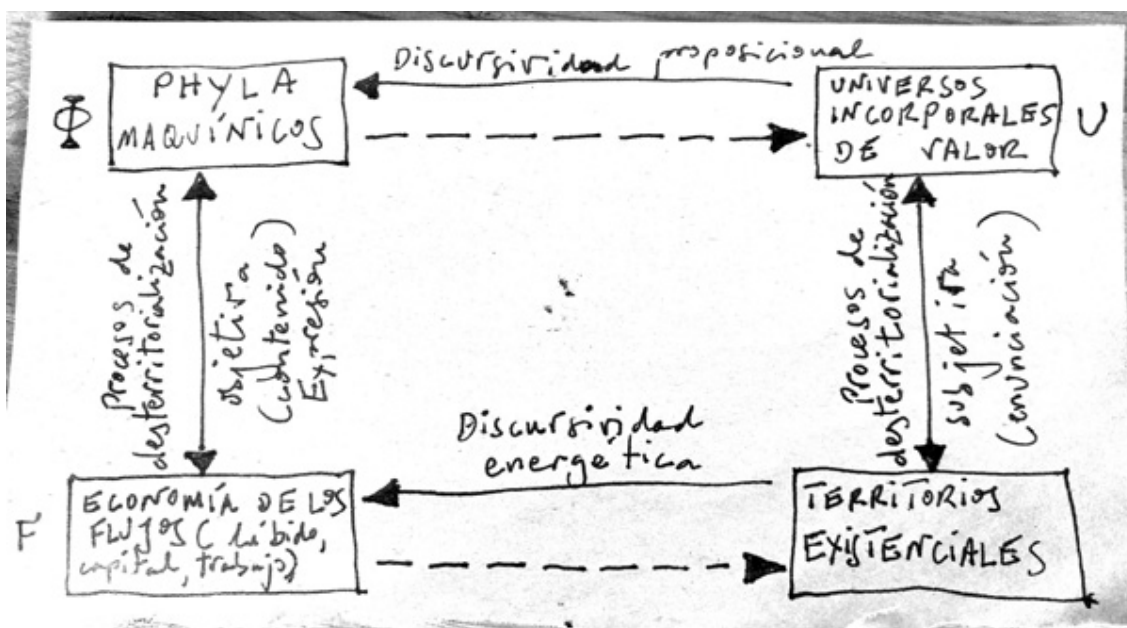 Discursividad proposicional
Φ
PHYLA
MAQUÍNICOS
UNIVERSOS
INCORPORALES
DE VALOR
U
Procesos de
desterritorialización
objetiva
(contenido)
Expresión
Procesos de
desterritorialización
subjetiva
(enunciación)
Discursividad
energética
F
ECONOMÍA DE LOS
FLUJOS (Líbido,
capital, trabajo)
TERRITORIOS
EXISTENCIALES